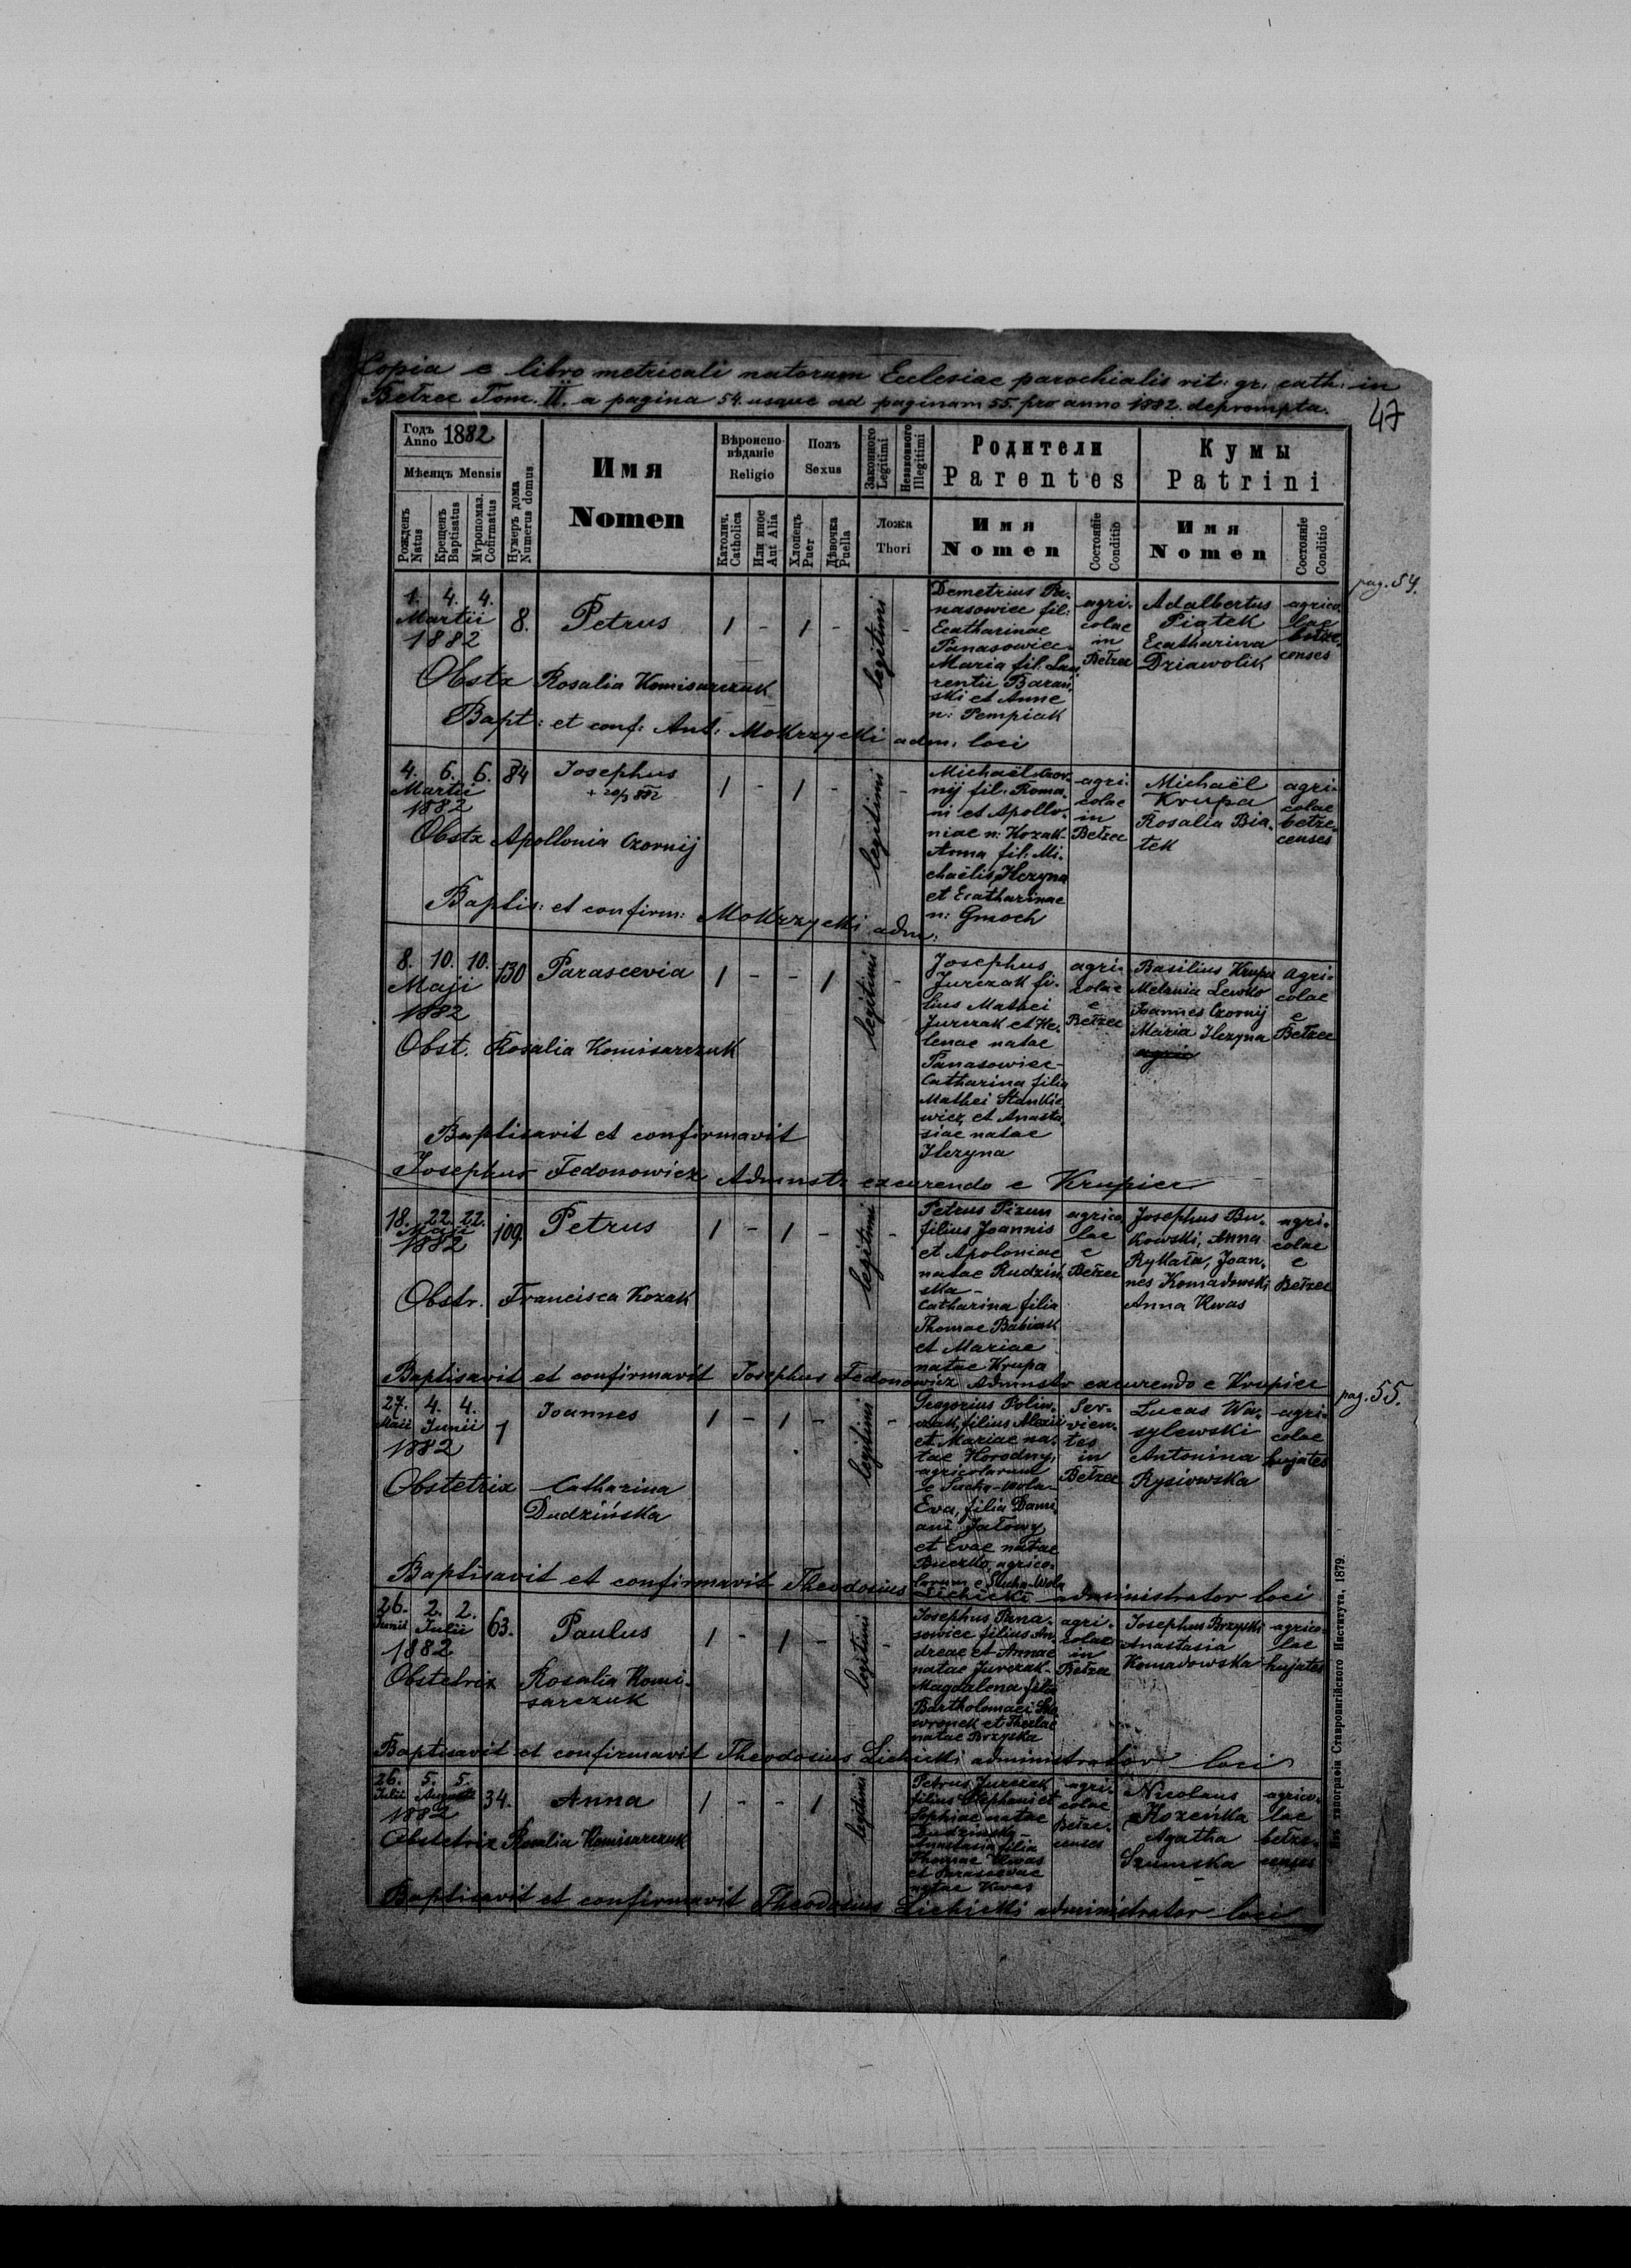 Copia e libro metricali natorum Ecclesiae parochialis rit: gr: cath: in
Bełzec Tom. II. a pagina 54. usque ad paginam 55. pro anno 1882. deprompta.
47
Годъ
Anno 1882
Мѣсяцъ Mensis
Рожденъ
Natus
Крещенъ
Baptisatus
Мѵропомаз.
Cofirmatus
Нумеръ дома
Numerus domus
Имя
Nomen
Вѣроиспо-
вѣданіе
Religio
Католич.
Catholica
Или иное
Aut Alia
Полъ
Sexus
Хлопецъ
Puer
Дѣвочка
Puella
Законного
Legitimi
Незаконного
Illegitimi
Ложа
Thori
Родители
Parentes
Имя
Nomen
Состояніе
Conditio
Кумы
Patrini
Имя
Nomen
Состояніе
Conditio
pag. 54.
1. 4. 4.
Martii
1882
8.
Petrus
1 - 1 -
legitimi
-
Demetrius Pa-
nasowiec fil:
Ecatharinae
Panasowiec-
Maria fil. Lau
rentii Barań,
ski et Anne
n: Pempiak
agri-
colae
in
Bełzec
Adalbertus
Piątek
Ecatharina
Dziawolik
agrico-
lae
bełze-
censes
Obstx Rosalia Komisarczuk
Bapt: et conf: Ant: Mokrzycki adm: loci
4. 6. 6.
Martii
1882
84
Josephus
1 - 1 -
legitimi
-
Michaël Czor-
nij fil: Roma-
ni et Apollo-
niae n: Kozak-
Anna fil: Mi-
chaëlis Hczyna
et Ecatharinae
n: Gmoch
agri-
colae
in
Bełzec
Michaël
Krupa
Rosalia Bia-
tek
agri-
colae
bełze-
censes
Obstx Apollonia Czornij
Baptis: et confirm: Mokrzycki adm:
8. 10. 10.
Maji
1882
130
Parascevia
1 - - 1
legitimi
-
Josephus
Jurczak fi-
lius Mathei
Jurczak et He-
lenae natae
Panasowiec-
Catharina filia
Mathei Stankie
wicz, et Anasta
siae natae
Ilczyna
agri-
colae
e
Bełzec
Basilius Krupa
Melania Lewko
Joannes Czornij
Maria Ilczyna
agri-
colae
e
Bełzec
Obst. Rosalia Komisarczuk
Baptisavit et confirmavit
Josephus Fedonowicz Admnstr excurendo e Krupiec
18. 22. 22.
Maii
1882
109.
Petrus
1 - 1 -
legitimi
-
Petrus Pizun
filius Joannis
et Apoloniae
natae Rudziń
ska-
Catharina filia
Thomae Babiak
et Mariae
natae Krupa
agrico
lae
e
Bełzec
Josephus Bu-
kowski, Anna
Rykała, Joan-
nes Komadowski
Anna Kwas
agri-
colae
e
Bełzec
Obstr. Francisca Kozak
Baptisavit et confirmavit Josephus Fedonowicz Admnstr excurendo e Krupiec
pag. 55.
27. 4. 4.
Maii Junii
1882
1
Joannes
1 - 1 -
legitimi
-
Gregorius Polin-
czak, filius Alexii
et Mariae na-
tae Horodny,
agricolarum
e Sucha-Wola
Eva, filia Dami
ani Jałowy
et Evae natae
Buczko, agrico-
larum e Sucha-Wola
Ser-
vien-
tes
in
Bełzec
Lucas Wa-
sylewski
Antonina
Rysiowska
agri-
colae
hujates
Obstetrix Catharina
Dudzińska
Baptisavit et confirmavit Theodosius Lichicki administrator loci
26. 2. 2.
Junii Julii
1882
63.
Paulus
1 - 1 -
legitimi
-
Josephus Pana-
sowiec filius An
dreae et Annae
natae Jurczak-
Magdalena filia
Bartholomaei Ska
wronek et Theclae
natae Brzyska
agri-
colae
in
Bełzec
Josephus Brzyski
Anastasia
Komadowska
agrico-
lae
hujates
Obstetrix Rosalia Komi-
sarczuk
Baptisavit et confirmavit Theodosius Lichicki administrator loci
26. 5. 5.
Julii Augusti
1882
34.
Anna
1 - - 1
legitimi
Petrus Jurczak
filius Stephani et
Sophiae natae
Anastasia filia
Thomae Kwas
et Parasceviae
natae Kwas
agri-
colae
Bełze-
censes
Nicolaus
Kozeńka
Agatha
Szumska
agrico-
lae
bełze-
censes
Obstetrix Rosalia Komisarczuk
Baptisavit et confirmavit Theodosius Lichicki administrator loci
Изъ типографіи Ставропигійского Института, 1879.